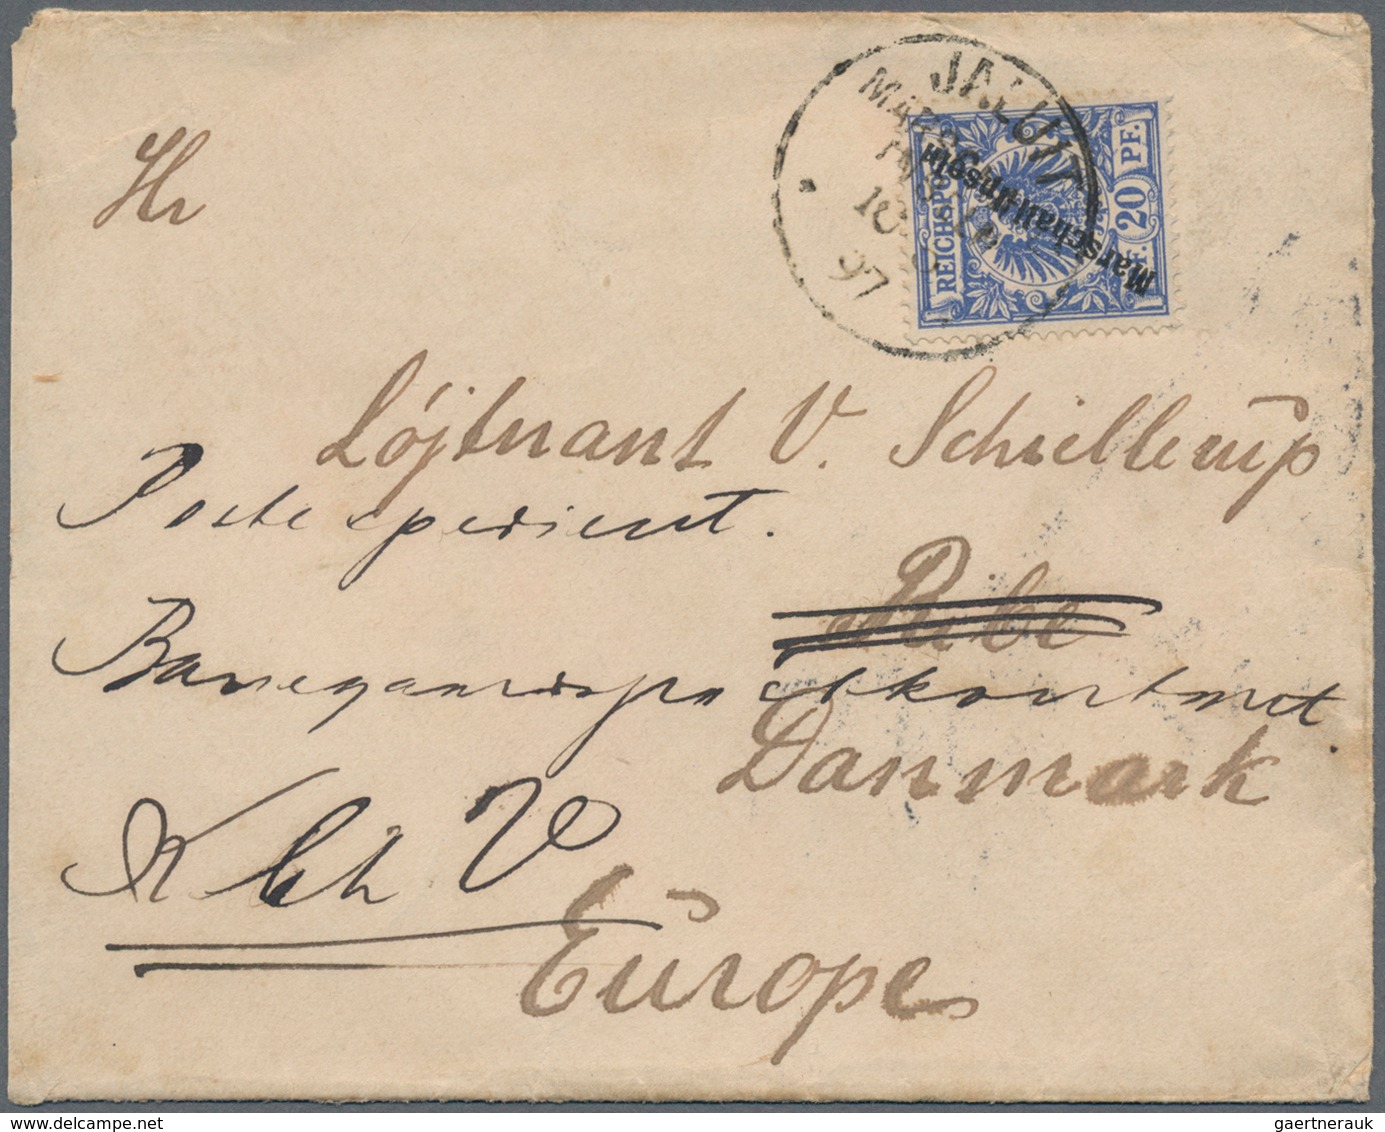 Hr
JALUIT
97
REICHSPOST
20 PF.
Marschall-Inseln
Löjtnant V. Schiellerup
Postexpedient.
Ribe
Banegaardspostkontoret.
Danmark
Kbh V
Europe
www.delcampe.net
gaertnerauk